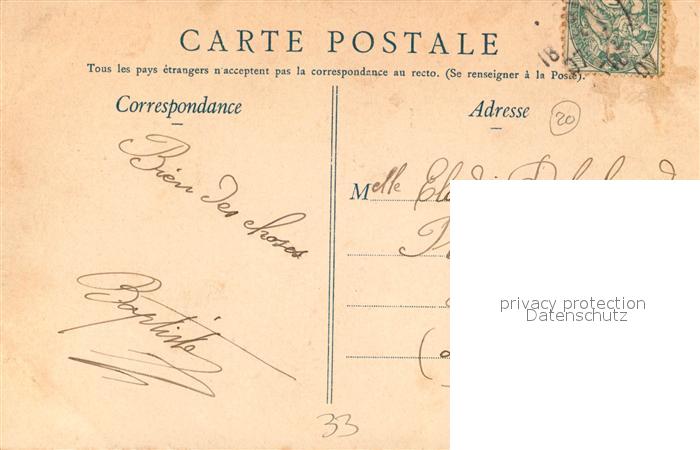 CARTE POSTALE
Tous les pays étrangers n'acceptent pas la correspondance au recto. (Se renseigner à la Poste).
Correspondance
Adresse
20
Bien des choses
Baptiste
Melle
privacy protection
Datenschutz
33